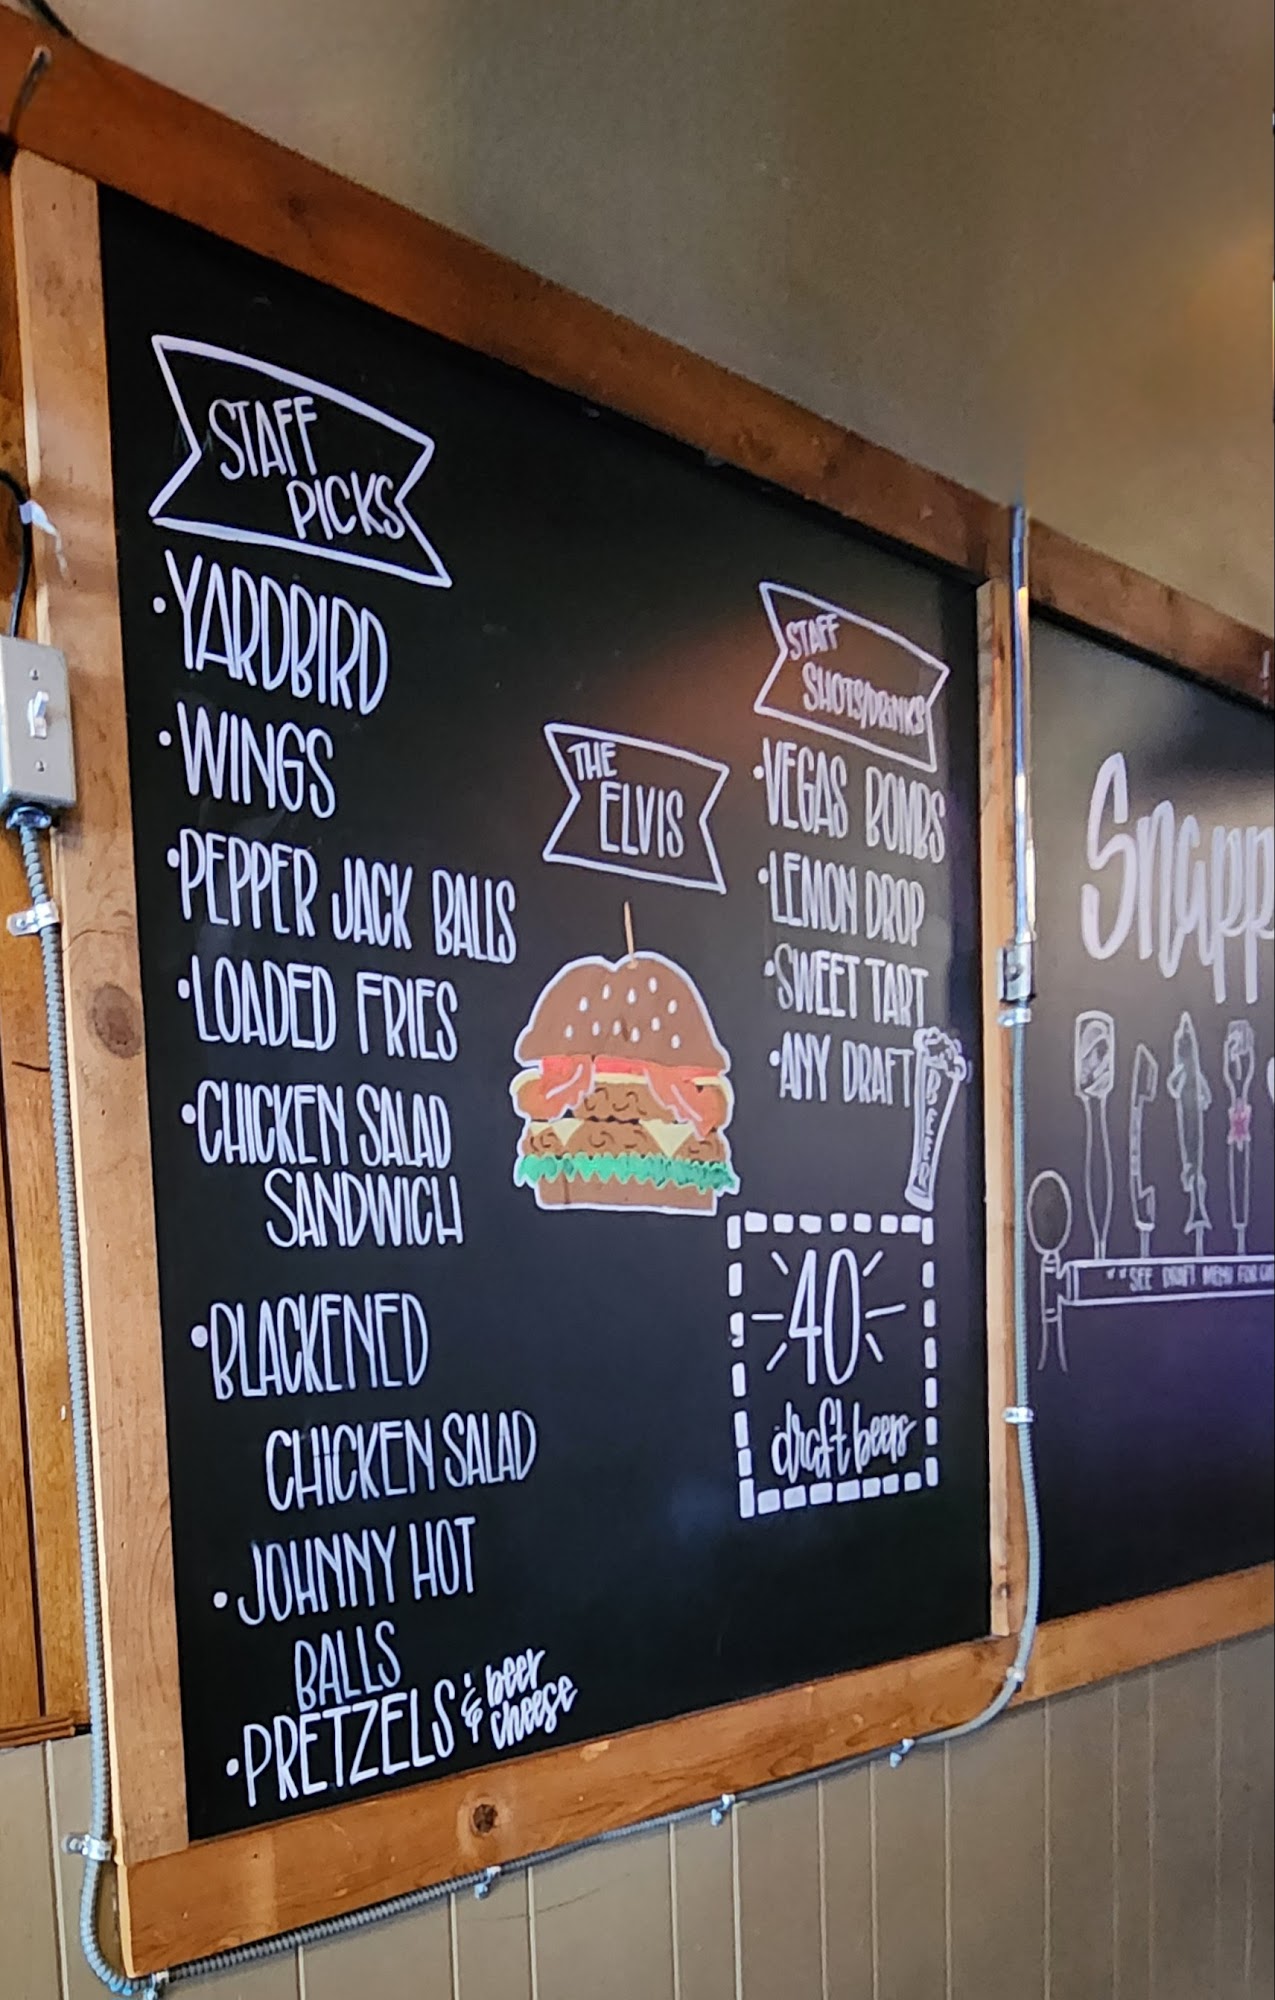 STAFF
PICKS
• YARDBIRD
• WINGS
• PEPPER JACK BALLS
• LOADED FRIES
• CHICKEN SALAD
SANDWICH
• BLACKENED
CHICKEN SALAD
• JOHNNY HOT
BALLS
• PRETZELS & beer
cheese
THE
ELVIS
STAFF
SHOTS/DRINKS
• VEGAS BOMBS
• LEMON DROP
• SWEET TART
• ANY DRAFT
BEER
40
draft beers
Snapp
**SEE DRAFT MENU FOR